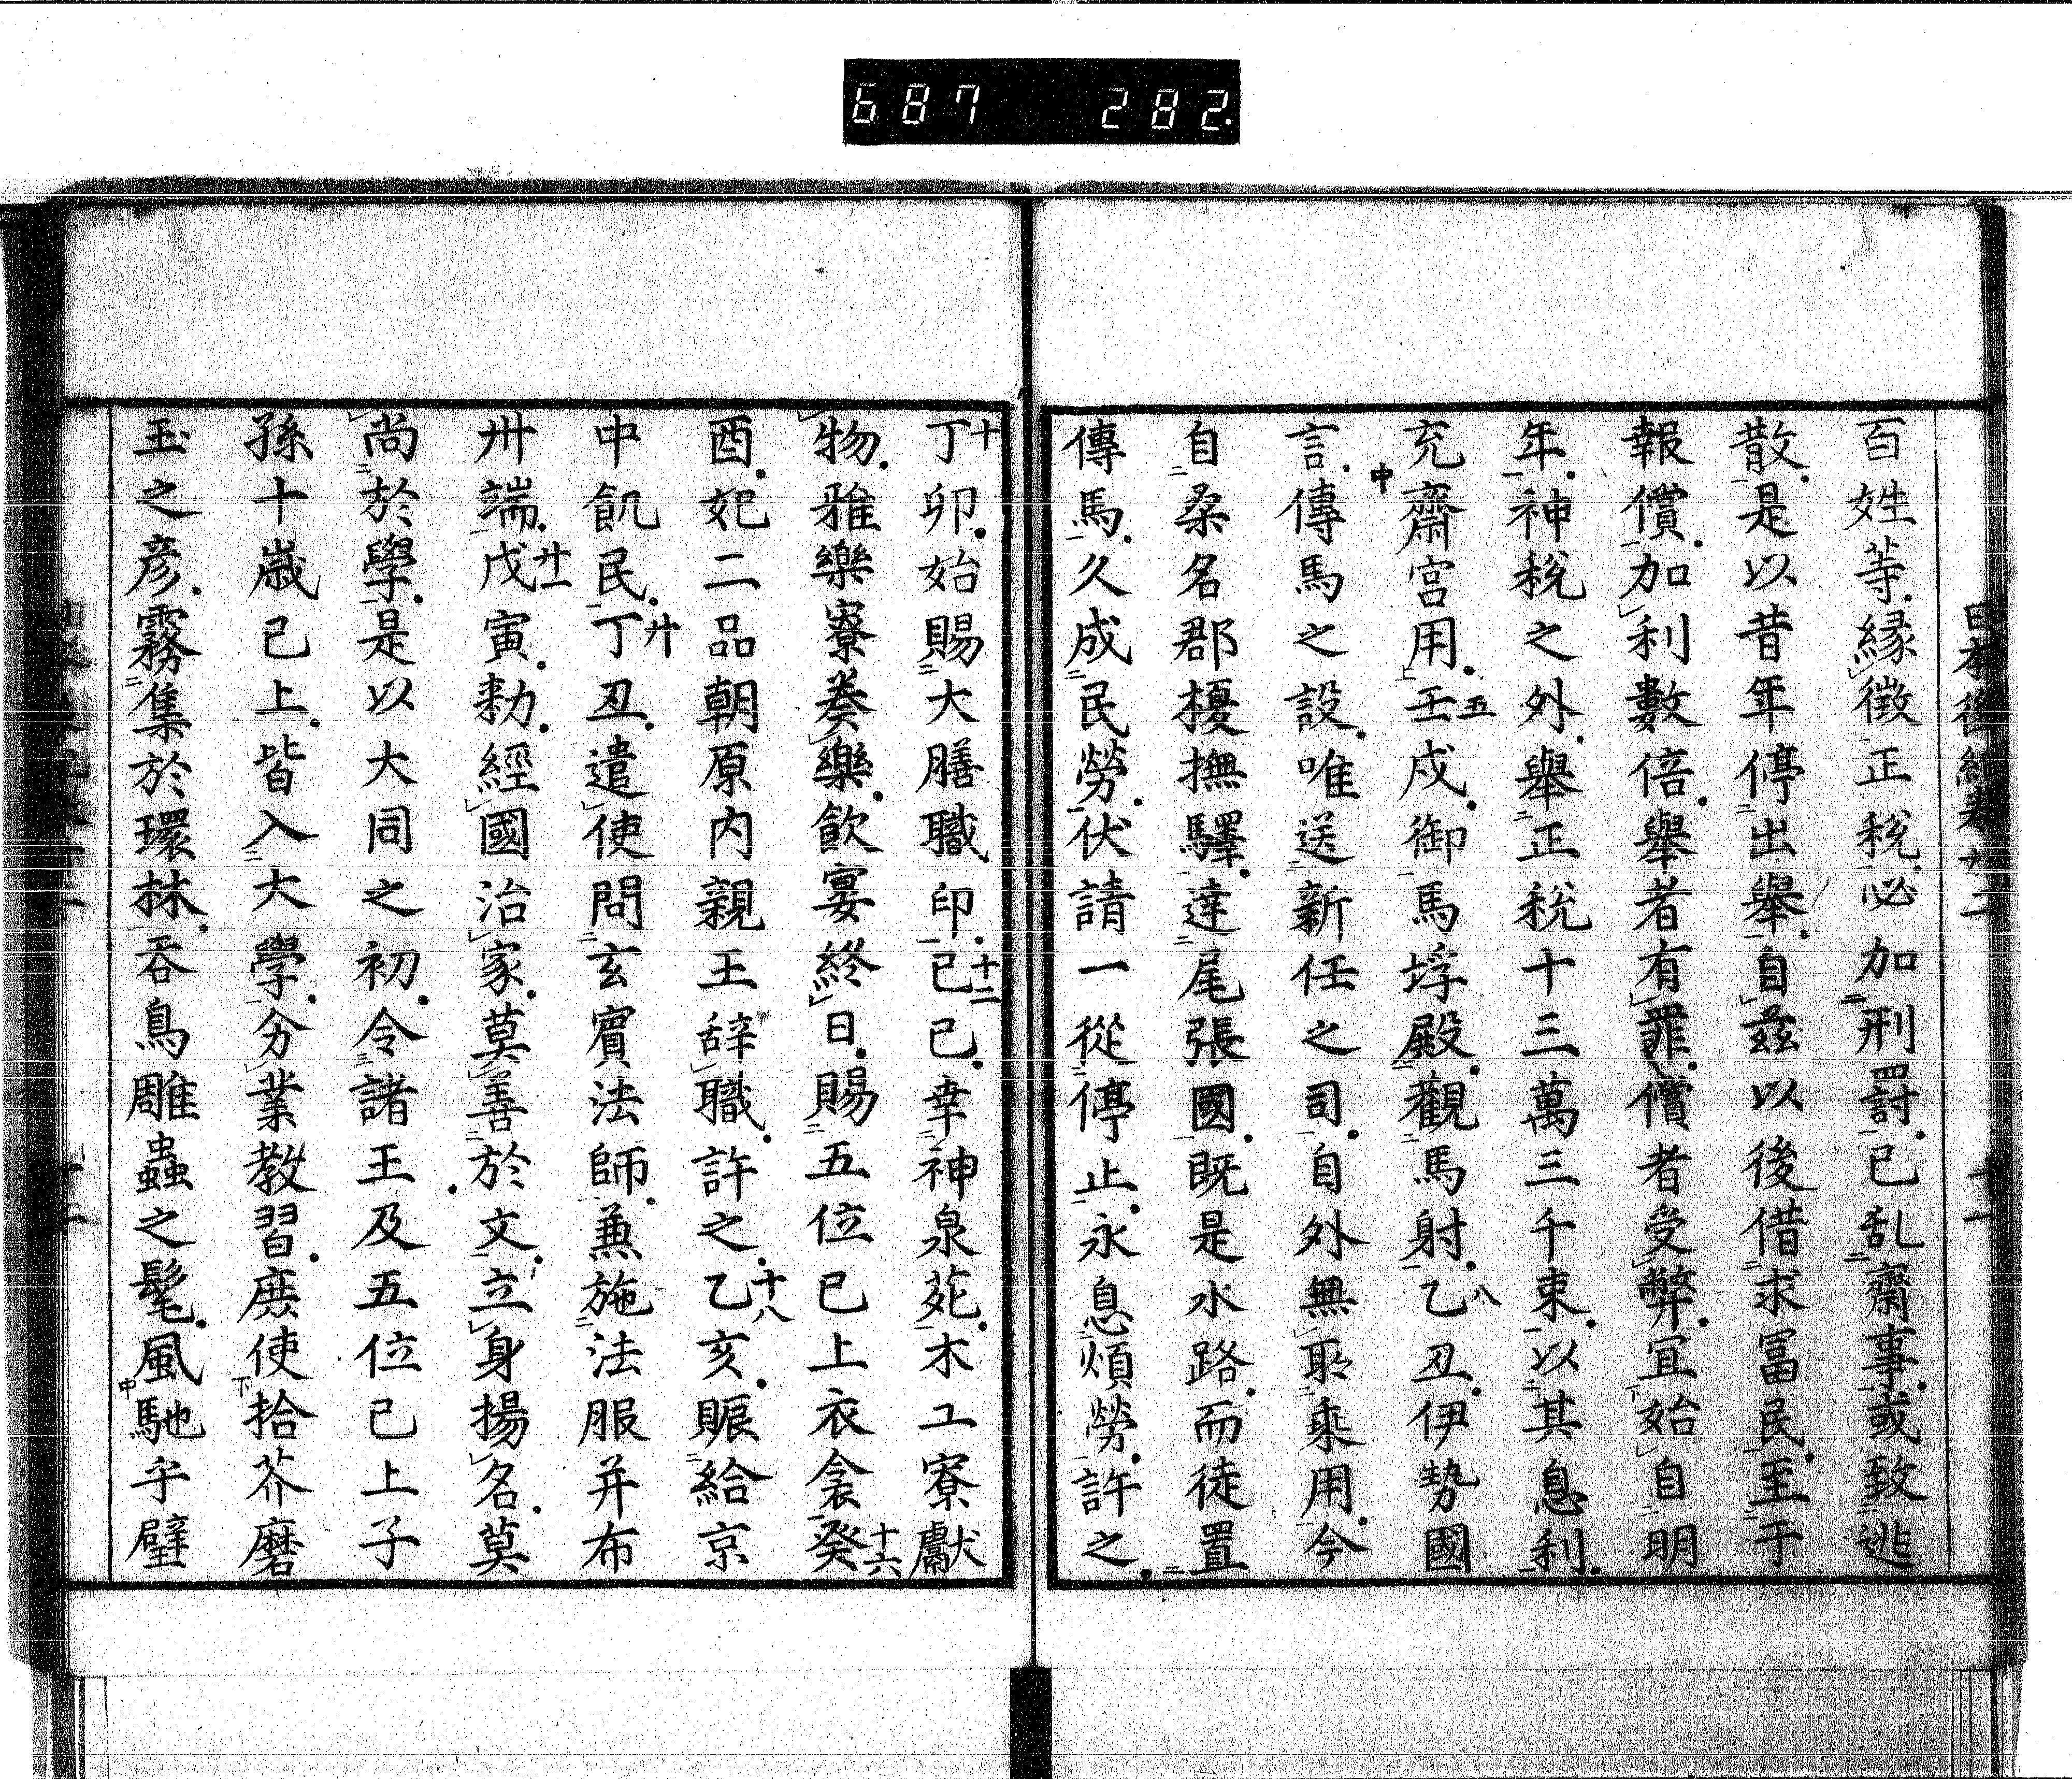 687 282
日本後紀卷廿二 十一
百姓等緣徵正税必加刑罸已乱齋事或致逃
散是以昔年停出舉自茲以後借求冨民至于
報償加利數倍舉者有罪償者受弊冝始自明
年神税之外舉正税十三萬三千束以其息利
充齋宮用壬戌五御馬埒殿觀馬射乙丑八伊勢國
言傳馬之設唯送新任之司自外無所乘用今
自桑名郡榎撫驛達尾張國既是水路而徒置
傳馬久成民勞伏請一從停止永息煩勞許之
丁卯十始賜大膳職印己巳十二幸神泉苑木工寮獻
物雅樂寮奏樂飲宴終日賜五位已上衣衾癸十六
酉妃二品朝原内親王辞職許之乙亥十八賑給京
中飢民丁丑廿遣使問玄賓法師兼施法服并布
卅端戊寅廿一勑經國治家莫善於文立身揚名莫
尚於學是以大同之初令諸王及五位已上子
孫十歳已上皆入大學分業教習庶使拾芥磨
玉之彦霧集於環林吞鳥雕蟲之髦風馳乎璧